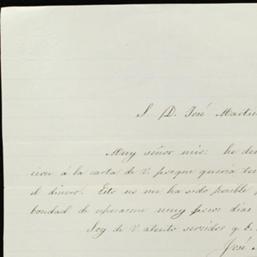 S. D. José Martin
Muy señor mio: he de
cion á la carta de V. porque queria
el dinero. Esto no me ha sido posible
bondad de esperarme muy pocos dias
Soy de V. atento servidor q. b.
José